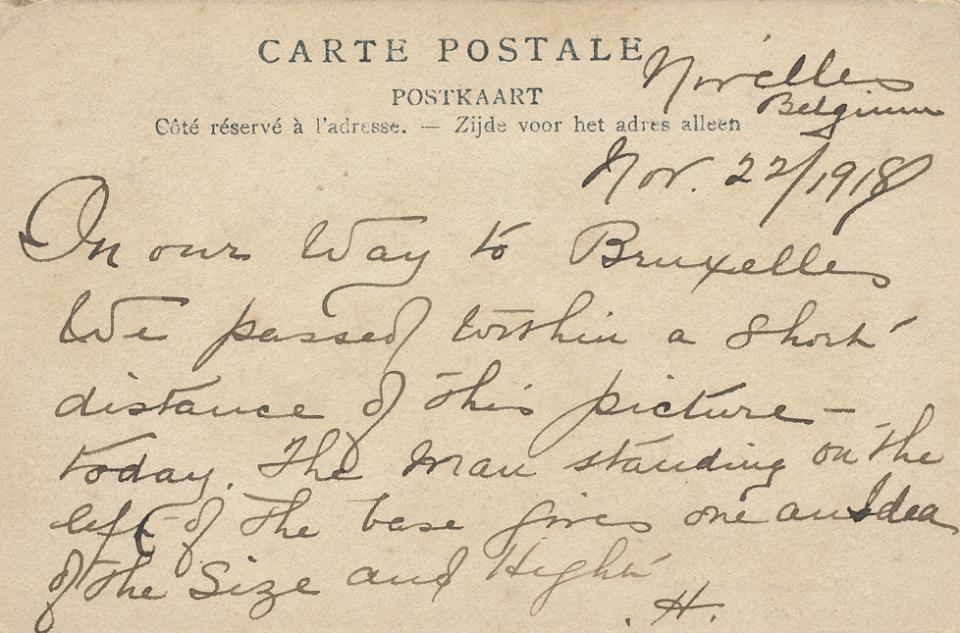 CARTE POSTALE
POSTKAART
Côté réservé à l'adresse. — Zijde voor het adres alleen
Nivelles
Belgium
Nov. 22/1918
On our way to Bruxelles
We passed within a short
distance of this picture –
today. The Man standing on the
left of the base gives one an Idea
of the Size and Hight
. H.